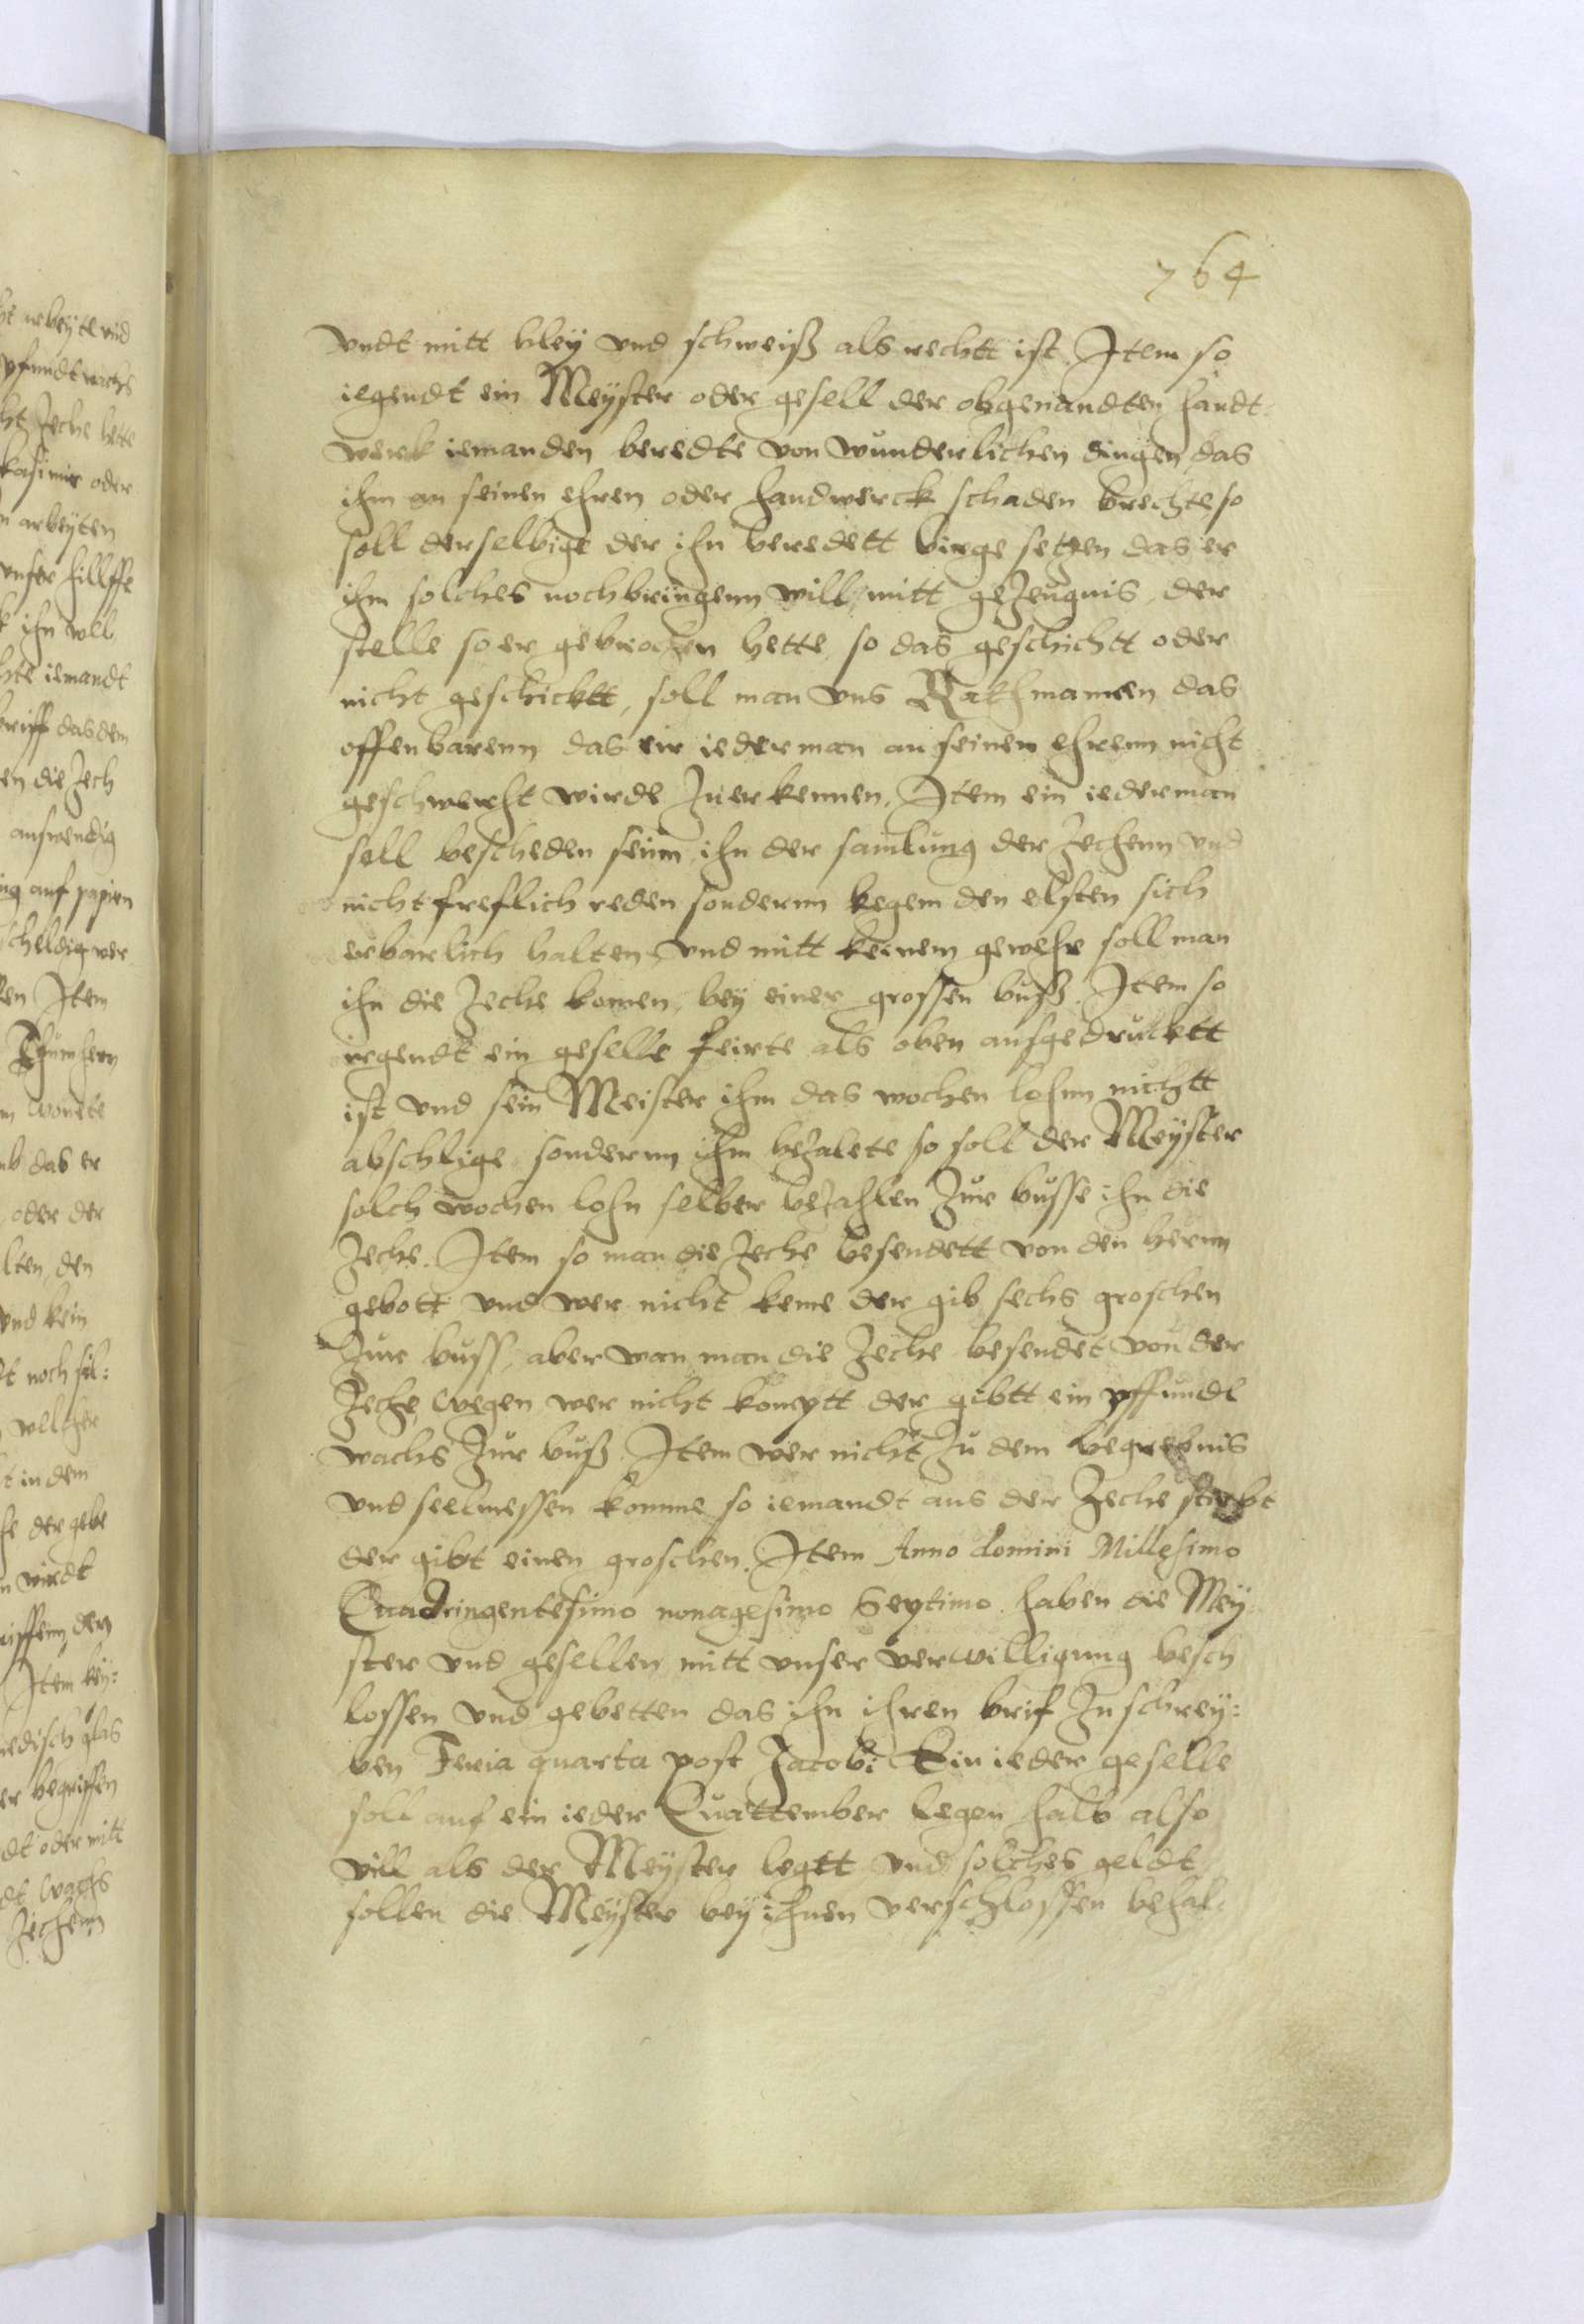 764
vndt mitt bley vnd schweiß als rechtt ist. Item so
iegendt ein Meyster oder gesell der obgenandten handt
werck iemanden beredte von wunderlichen dingen das
ihm an seinen ehren oder handwerck schaden brechte, so
soll derselbige der ihn beredett birge setzen das er
ihm solches nochbringenn will mitt gezeugnis, der
stelle so er gebrochen hette, so das geschichtt oder
nicht geschicktt, soll man vns Rathmannen das
offenbarenn das eir iederman an seinen ehrenn nicht
geschwecht wirde zuerkennen. Item ein iederman
soll bescheden seinn ihn der samlung der Zechenn vnd
nicht freflich reden sondernn kegem den elsten sich
erbarlich halten, vnd mitt keinem gewehr soll man
ihn die Zeche komen, bey einer grossen buß. Item so
irgendt ein geselle feirte als oben ausgedruckett
ist vnd sein Meister ihm das wochen lohnn nichtt
abschlige sondernn ihm bezalete so soll der Meyster
solch wochen lohn selber bezahlen zur busse ihn die
Zeche. Item so man die Zeche besendett von den hernn
gebott vnd wer nicht keme der gib sechs groschen
zur buss, aber wan man die Zeche besendet von der
Zeche wegen wer nicht kompt der gibtt ein pffundt
wachs zur buß. Item wer nicht zu dem begrebnis
vnd seelmessen komme so iemandt aus der Zeche stirbt
der gibt einen groschen. Item Anno domini Millesimo
Quadringentesimo nonagesimo Septimo haben die Mey
ster vnd gesellen mitt vnser verwilligung besch
lossen vnd gebetten das ihn ihren brif zuschrey:
ben Feria quarta post Jacobi Ein ieder geselle
soll auf ein ieder Quattember legen halb also
vill als der Meyster legtt vnd solches geldt
sollen die Meyster bey ihnen verschlossen behal